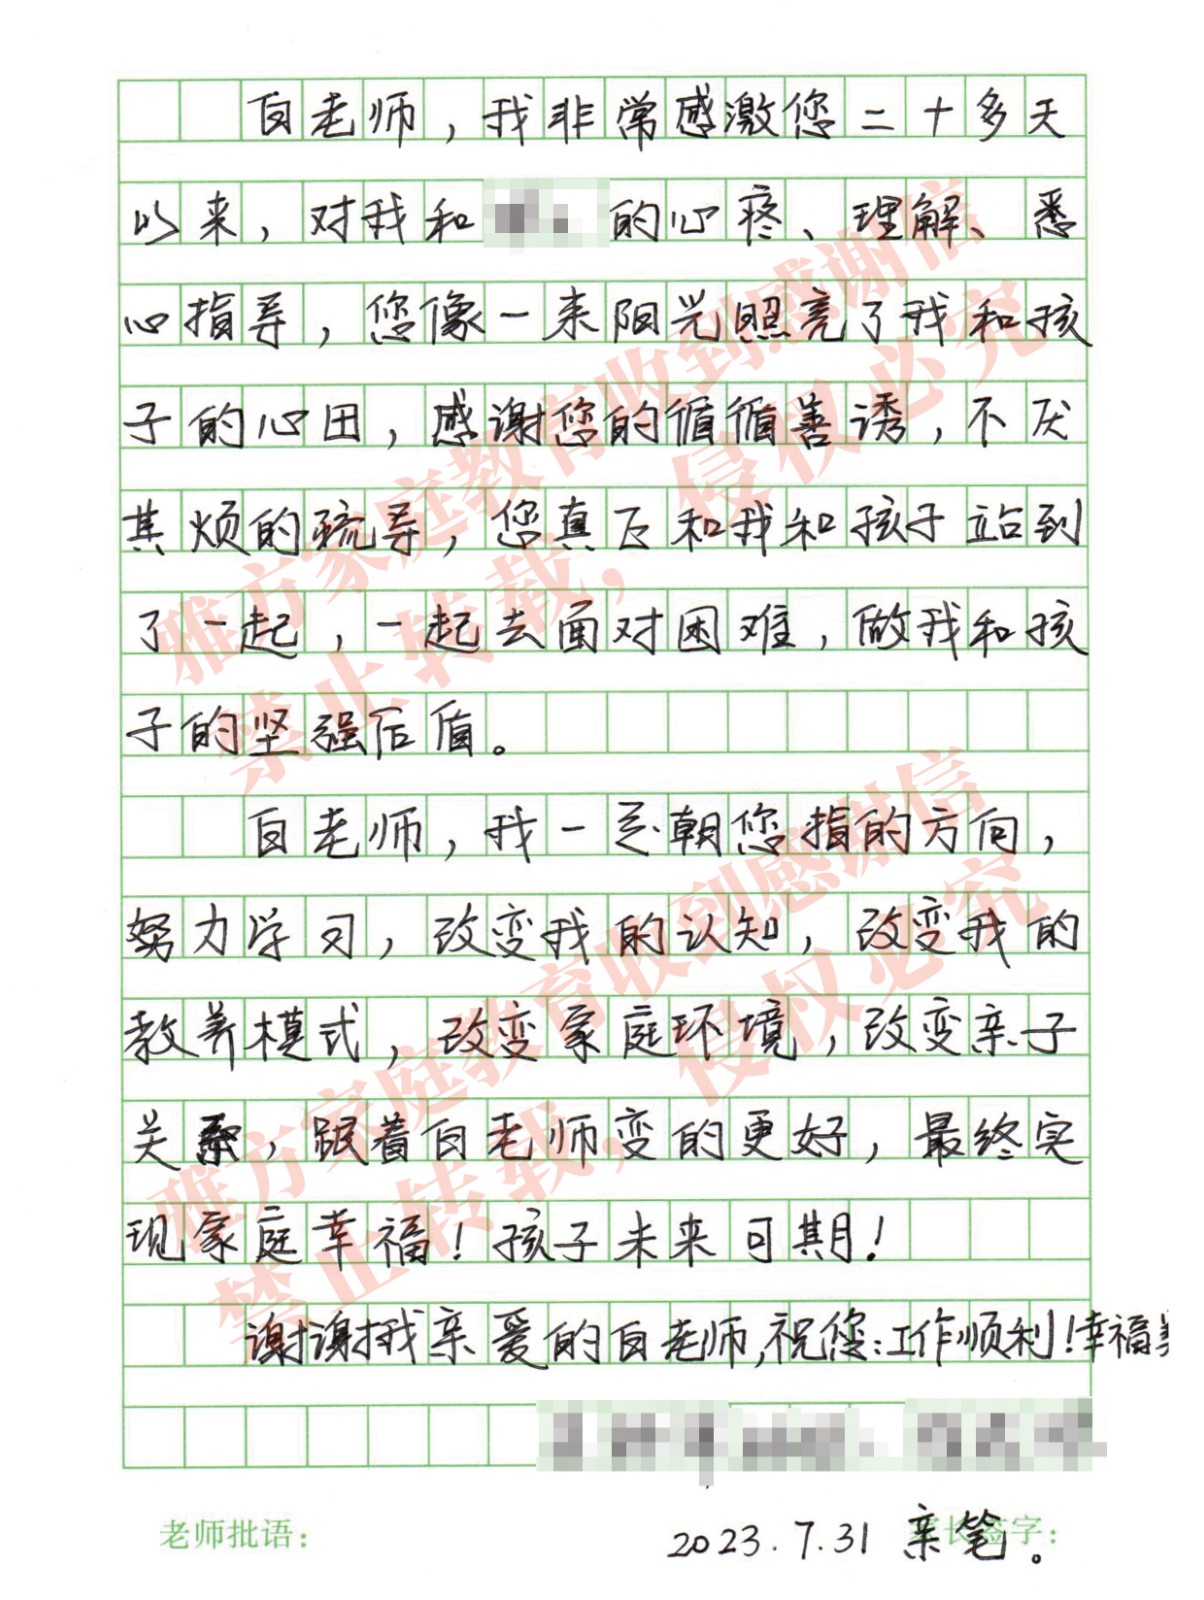 白老师，我非常感激您二十多天
以来，对我和 的心疼、理解、悉
心指导，您像一束阳光照亮了我和孩
子的心田，感谢您的循循善诱，不厌
其烦的疏导，您真正和我和孩子站到
了一起，一起去面对困难，做我和孩
子的坚强后盾。
白老师，我一定朝您指的方向，
努力学习，改变我的认知，改变我的
教养模式，改变家庭环境，改变亲子
关系，跟着白老师变的更好，最终实
现家庭幸福！孩子未来可期！
谢谢我亲爱的白老师，祝您：工作顺利！幸福
老师批语：
家长签字：
2023.7.31 亲笔。
雅方家庭教育收到感谢信
禁止转载，侵权必究
雅方家庭教育收到感谢信
禁止转载，侵权必究